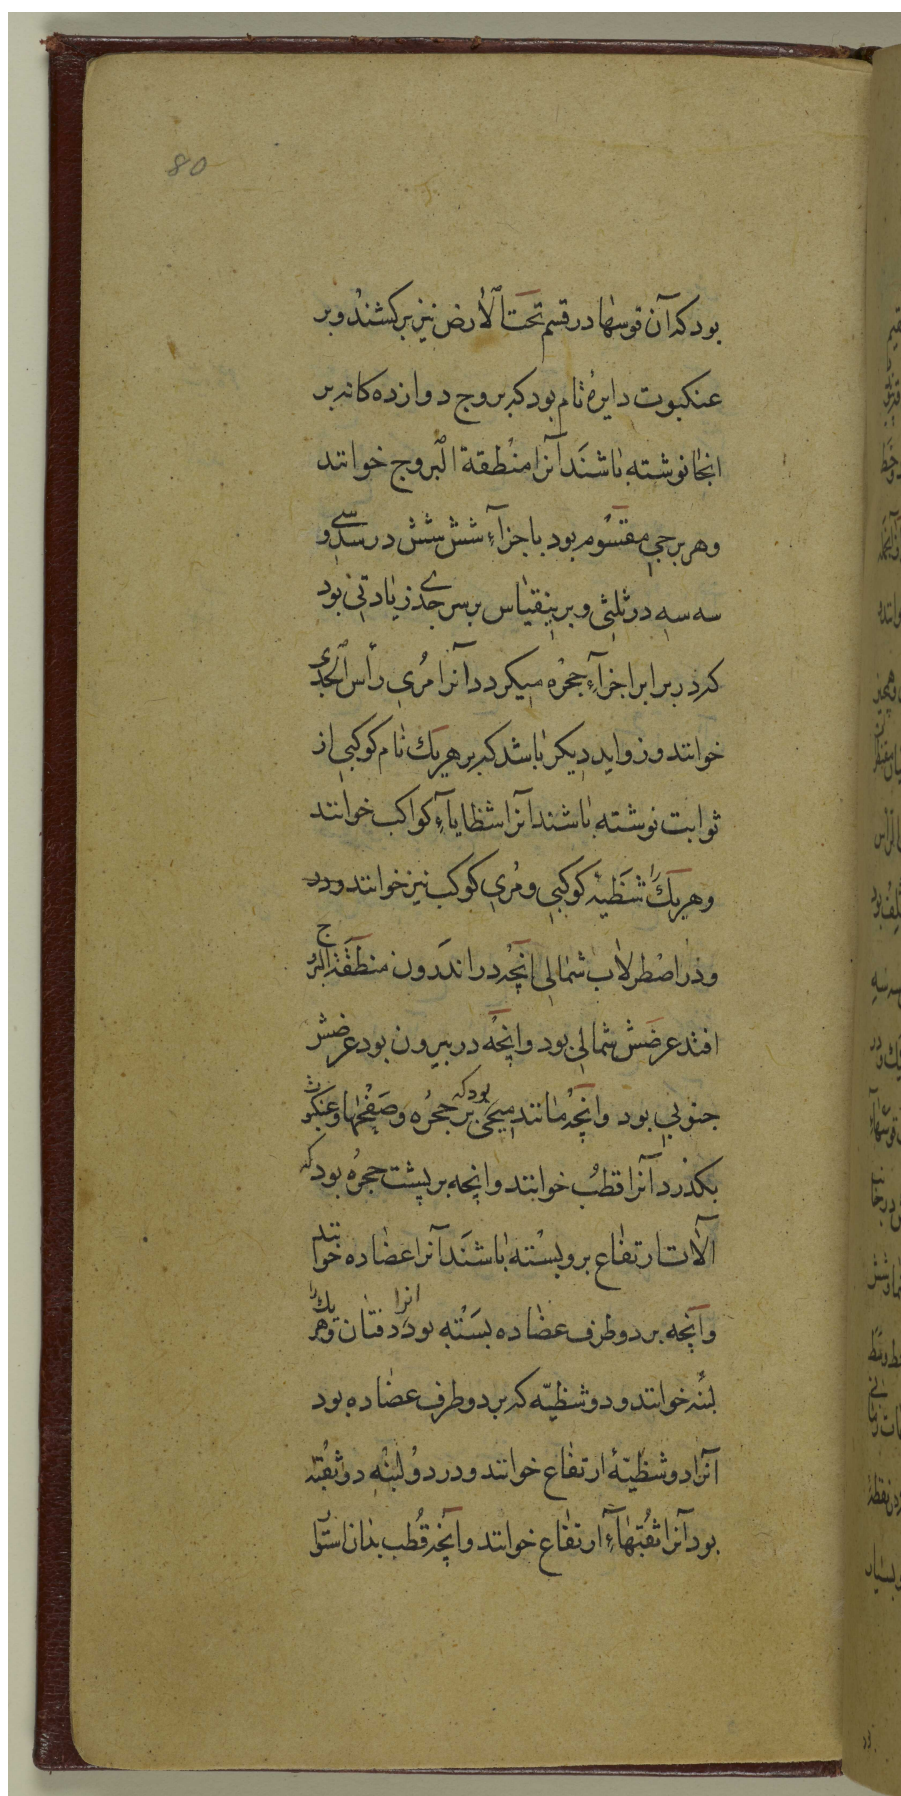 80
بود که آن قوسها در قسم تحت الارض نیز برکشند و بر
عنکبوت دایرهٔ تام بود که بروج دوازده کانه بر
انجا نوشته باشند آنرا منطقة البروج خوانند
وهر برجی مقسوم بود باجزآءِ شش شش در سدسی و
سه سه در ثلثی و برینقیاس بر سر جدی زیادتی بود
که در برابر اجزآءِ حجره میکردد آنرا مُری رأس الجدی
خوانند و زواید دیکر باشد که بر هر یک نام کوکبی از
ثوابت نوشته باشند آنرا شظایاءِ کواکب خوانند
وهر یک را شظیهٔ کوکبی و مُری کوکب نیز خوانند
ودر اصطرلاب شمالی انچه در اندرون منطقة البروج
افتد عرضش شمالی بود وانچه در بیرون بود عرضش
جنوبی بود وانچه مانند میخی بود که بر حجره وصفحها وعنکبوت
بکذرد آنرا قطب خوانند وانچه بر پشت حجره بود که
الات ارتفاع برو بسته باشند آنرا عضاده خوانند
وآنچه بر دو طرف عضاده بسته بود انرا دفتان وهر یک را
لبنه خوانند ودو شظیّه که بر دو طرف عضاده بود
آنرا دو شظیّهٔ ارتفاع خوانند ودر دو لبنه دو ثقبه
بود آنرا ثقبتهاءِ ارتفاع خوانند وآنچه قُطب بدان استوار